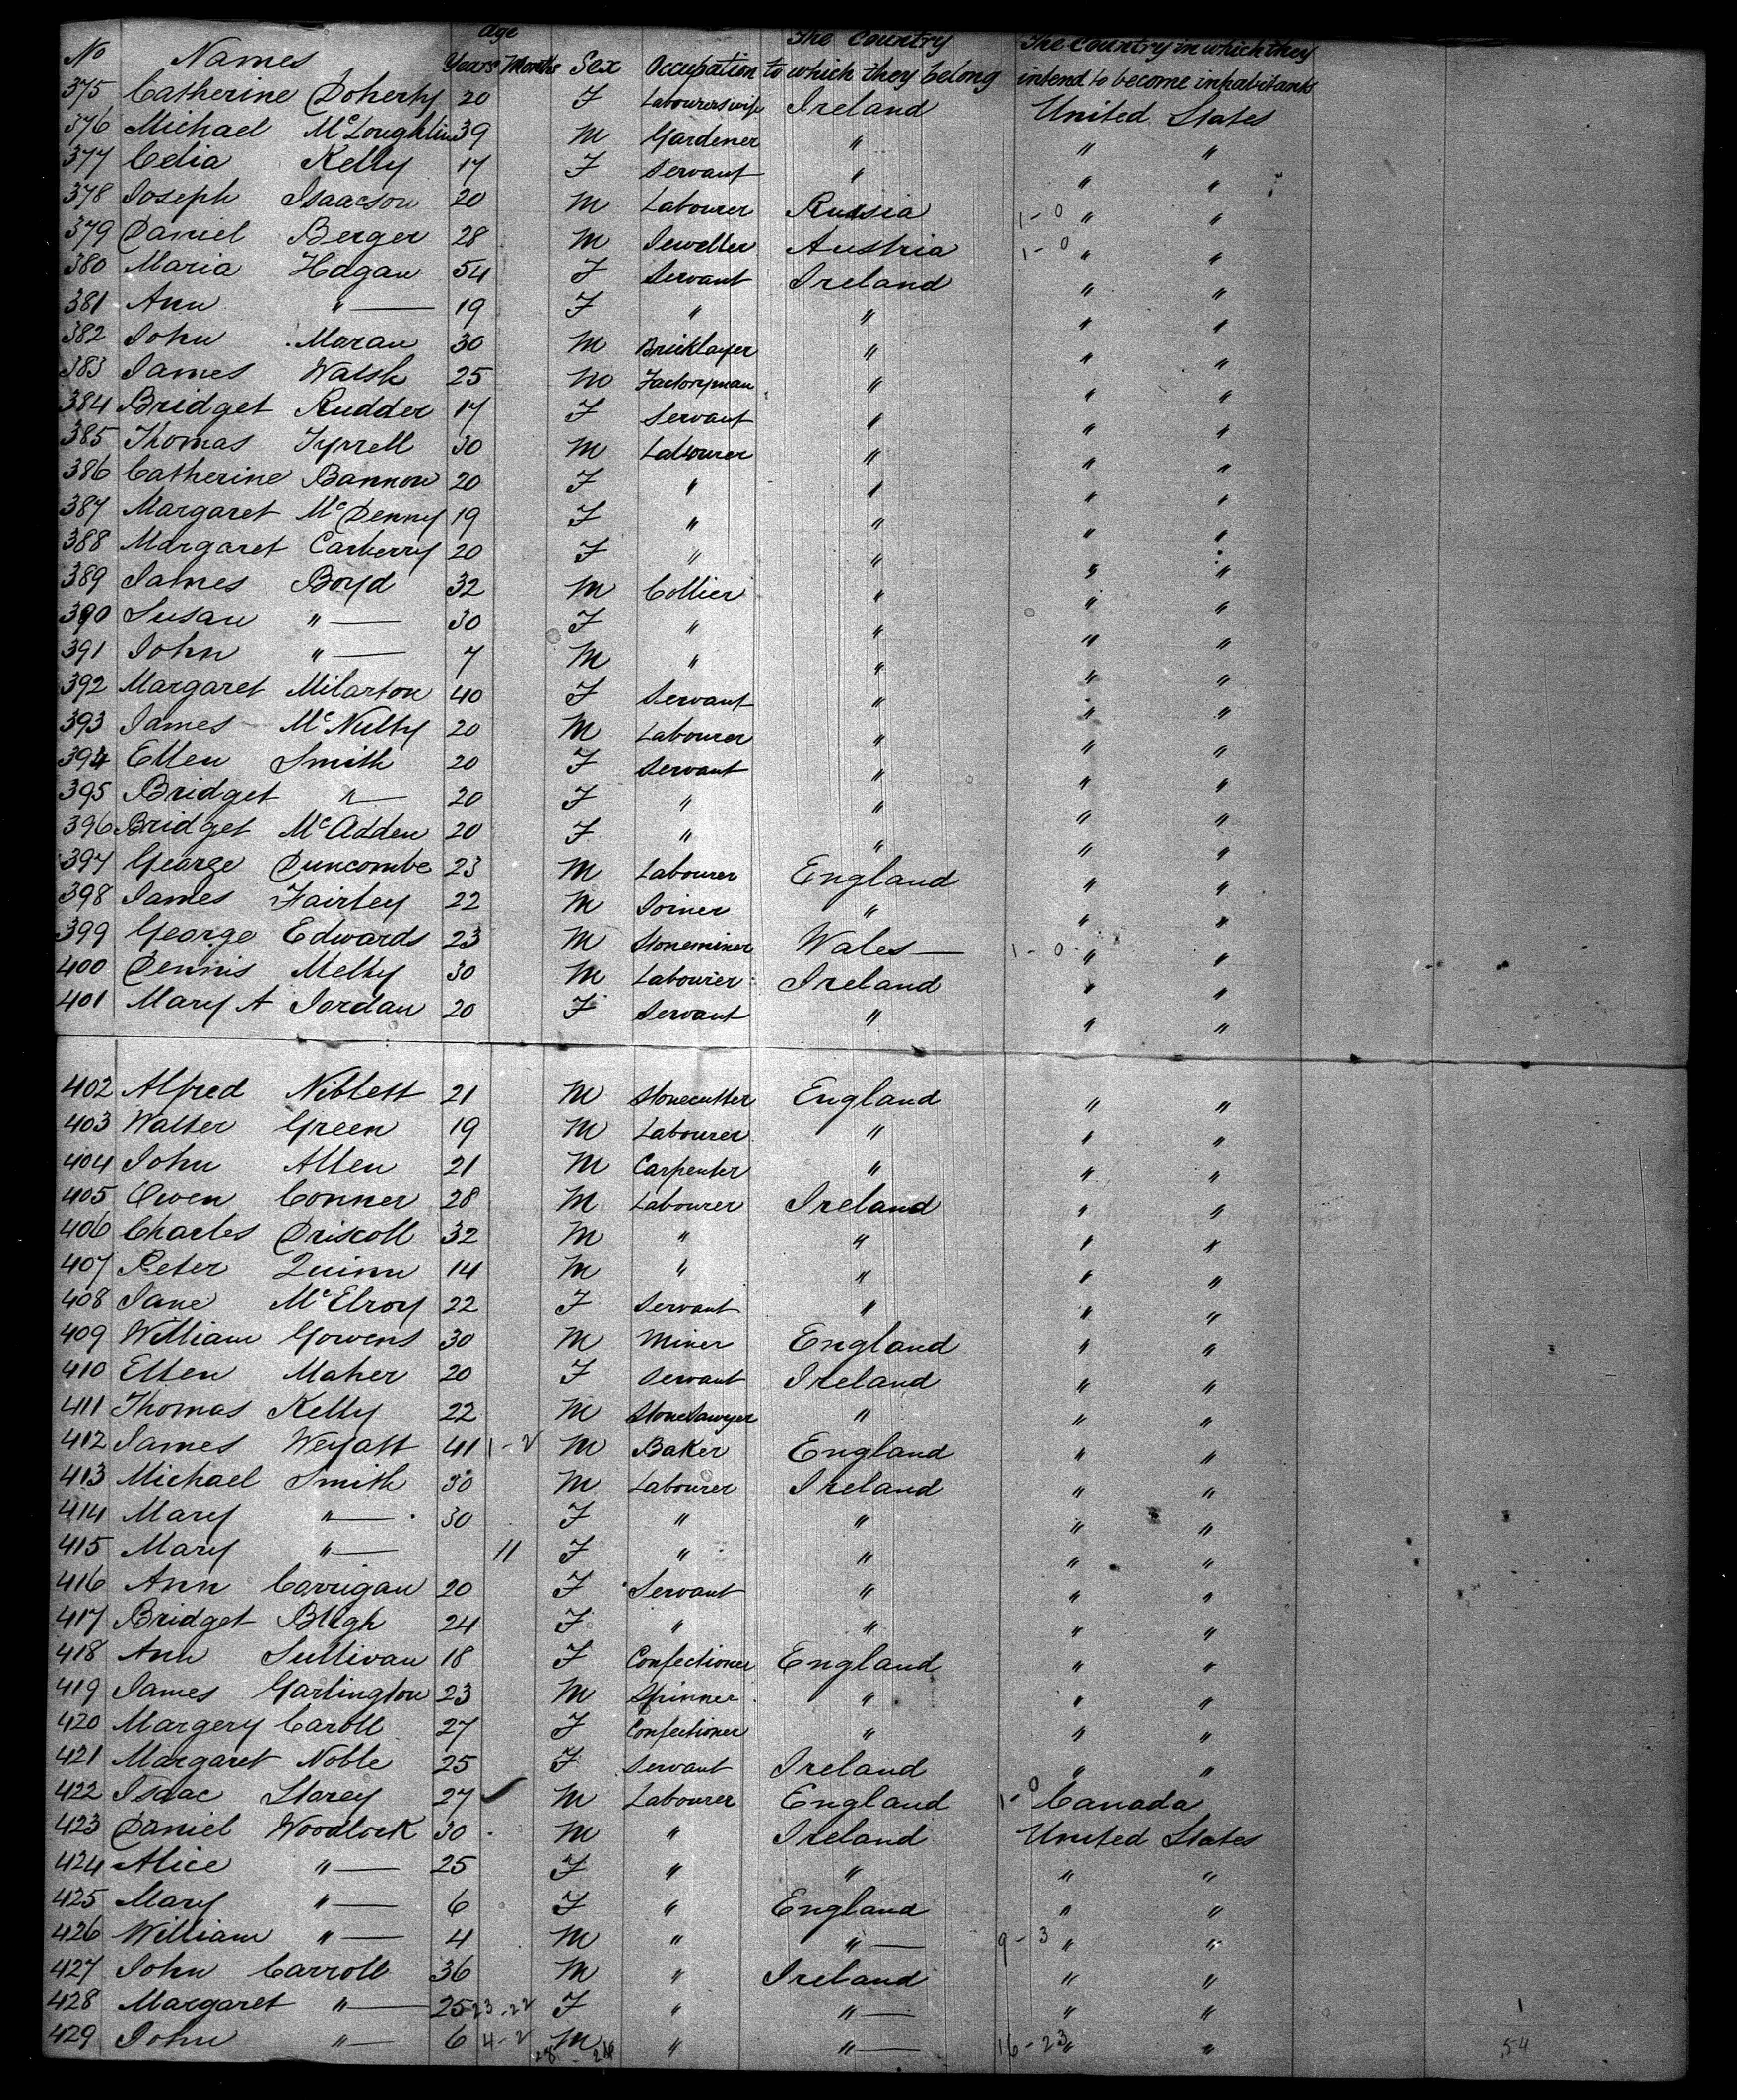 Age The Country The Country in which they
No Names Years Months Sex Occupation to which they belong intend to become inhabitants
375 Catherine Doherty 20 F Labourers wife Ireland United States
376 Michael McLoughlin 39 M Gardener " " "
377 Celia Kelly 17 F Servant " " "
378 Joseph Isaacson 20 M Labourer Russia 1-0 " "
379 Daniel Berger 28 M Jeweller Austria 1-0 " "
380 Maria Hagan 54 F Servant Ireland " "
381 Ann "— 19 F " " " "
382 John Moran 30 M Bricklayer " " "
383 James Walsh 25 M Factoryman " " "
384 Bridget Rudder 17 F Servant " " "
385 Thomas Tyrrell 30 M Labourer " " "
386 Catherine Bannon 20 F " " " "
387 Margaret McDenny 19 F " " " "
388 Margaret Carberry 20 F " " " "
389 James Boyd 32 M Collier " " "
390 Susan "— 30 F " " " "
391 John "— 7 M " " " "
392 Margaret Milarton 40 F Servant " " "
393 James McNulty 20 M Labourer " " "
394 Ellen Smith 20 F Servant " " "
395 Bridget "— 20 F " " " "
396 Bridget McAdden 20 F " " " "
397 George Duncombe 23 M Labourer England " "
398 James Fairley 22 M Joiner " " "
399 George Edwards 23 M Stoneminer Wales— 1-0 " "
400 Dennis Melky 30 M Labourer Ireland " "
401 Mary A Jordan 20 F Servant " " "
402 Alfred Niblett 21 M Stonecutter England " "
403 Walter Green 19 M Labourer " " "
404 John Allen 21 M Carpenter " " "
405 Owen Conner 28 M Labourer Ireland " "
406 Charles Driscoll 32 M " " " "
407 Peter Quinn 14 M " " " "
408 Jane McElroy 22 F Servant " " "
409 William Gowens 30 M Miner England " "
410 Ellen Maher 20 F Servant Ireland " "
411 Thomas Kelly 22 M Stone Sawyer " " "
412 James Weyatt 41 1-2 M Baker England " "
413 Michael Smith 30 M Labourer Ireland " "
414 Mary "— 30 F " " " "
415 Mary "— 11 F " " " "
416 Ann Corrigan 20 F Servant " " "
417 Bridget Bligh 24 F " " " "
418 Ann Sullivan 18 F Confectioner England " "
419 James Garlington 23 M Spinner " " "
420 Margery Caroll 27 F Confectioner " " "
421 Margaret Noble 25 F Servant Ireland " "
422 Isaac Storey 27 M Labourer England 1-0 Canada
423 Daniel Woodlock 30 M " Ireland United States
424 Alice "— 25 F " " " "
425 Mary "— 6 F " England " "
426 William "— 4 M " "— 9-3 " "
427 John Carroll 36 M " Ireland " "
428 Margaret "— 25 23-22 F " "— " "
429 John "— 6 4-2 M " "— 16-23 " "
54